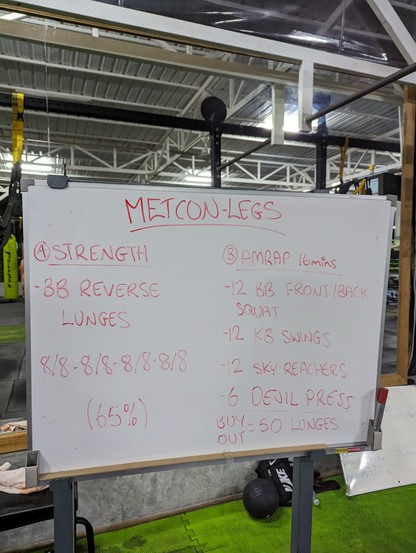 METCON-LEGS
Ⓐ STRENGTH
-BB REVERSE
LUNGES
8/8-8/8-8/8-8/8
(65%)
Ⓑ AMRAP 16mins
-12 BB FRONT/BACK
SQUAT
-12 KB SWINGS
-12 SKY REACHERS
-6 DEVIL PRESS
BUY OUT = 50 LUNGES
NIKE